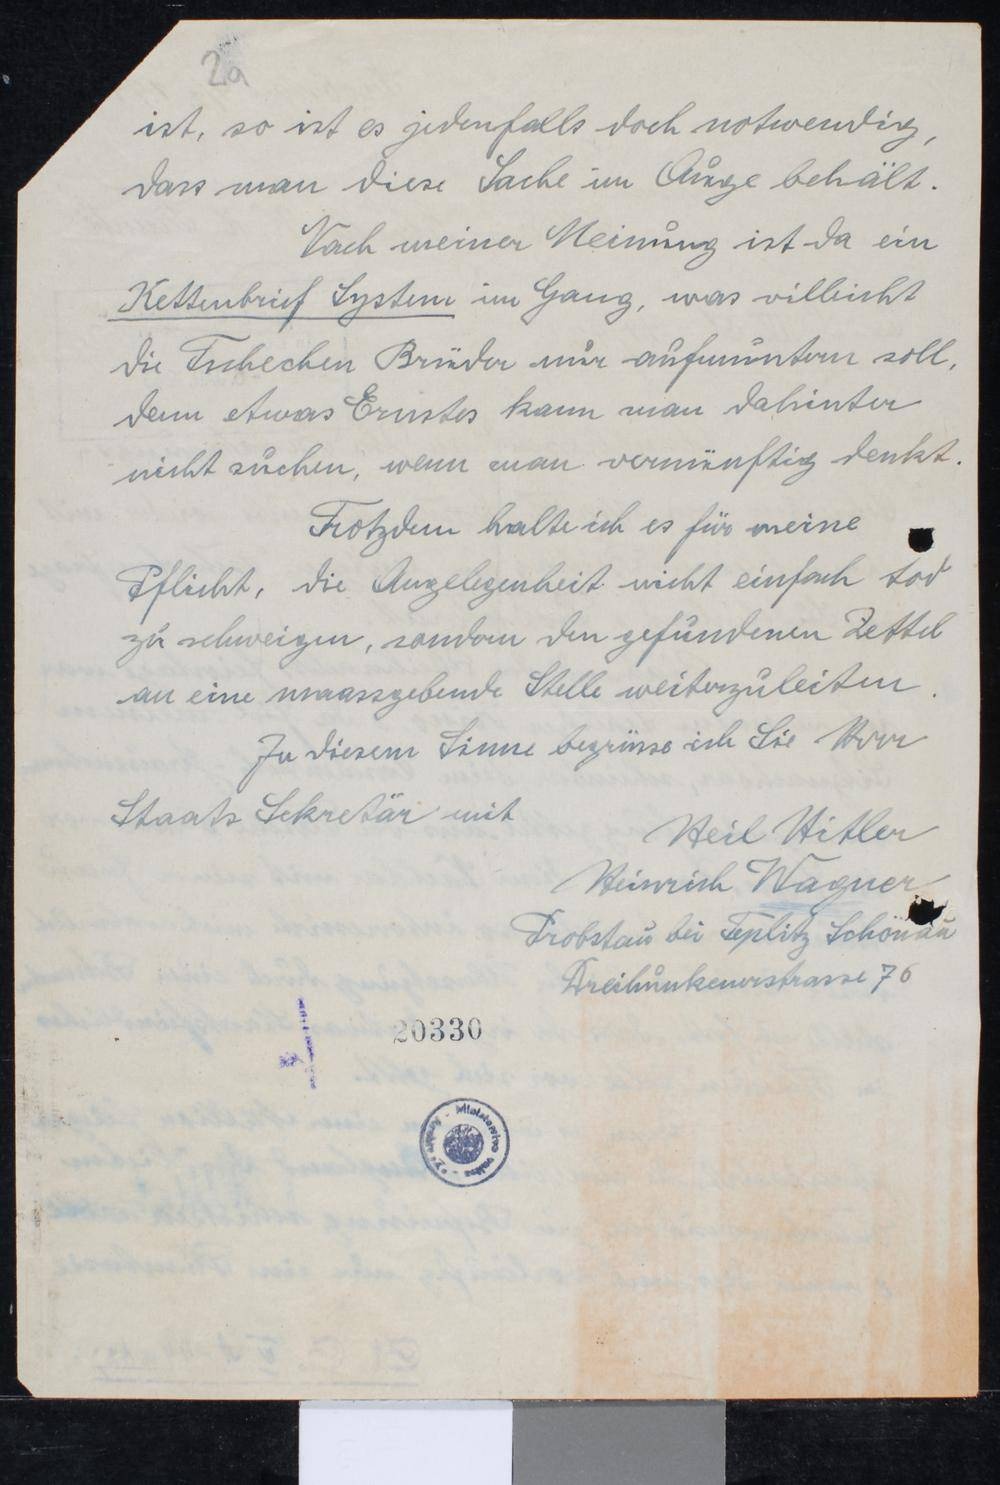 2a
ist, so ist es jedenfalls doch notwendig,
dass man diese Sache im Auge behält.
Nach meiner Meinung ist da ein
Kettenbrief System im Gang, was villeicht
die Tschechen Brüder nur aufmuntern soll,
denn etwas Ernstes kann man dahinter
nicht suchen, wenn man vernünftig denkt.
Trotzdem halte ich es für meine
Pflicht, die Angelegenheit nicht einfach tod
zu schweigen, sondern den gefundenen Zettel
an eine maassgebende Stelle weiterzuleiten.
In diesem Sinne begrüsse ich Sie Herr
Staats Sekretär mit
Heil Hitler
Heinrich Wagner
Probstau bei Teplitz Schönau
Dreihunkenerstrasse 76
20330